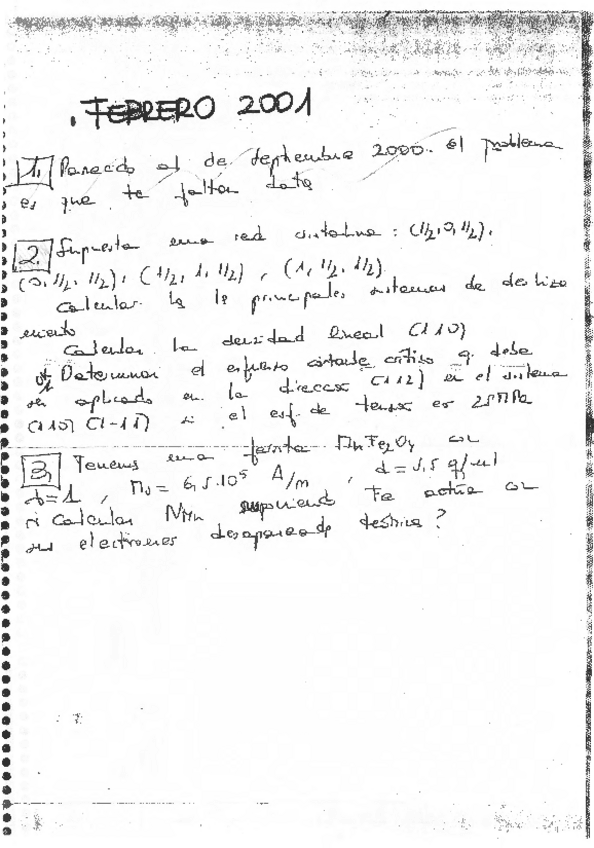 . FEBRERO 2001
1. Parecido al de Septiembre 2000. el problema
es que te faltan datos
2. Supuesta una red cristalina : (1/2, 0, 1/2),
(0, 1/2, 1/2), (1/2, 1, 1/2), (1, 1/2, 1/2)
Calcular principales sistemas de desliza
miento
Calcular la densidad lineal (110)
Determinar el esfuerzo cortante crítico q. debe
ser aplicado en la dirección (112) en el sistema
(110) (1-11) si el esf. de tensión es 25 MPa
3. Tenemos una ferrita MnFe2O4 con
b=1, Ms = 6,5.10^5 A/m, d = 5,5 g/ml
Calcular NMn suponiendo Fe actúa con
sus electrones desapareados ?